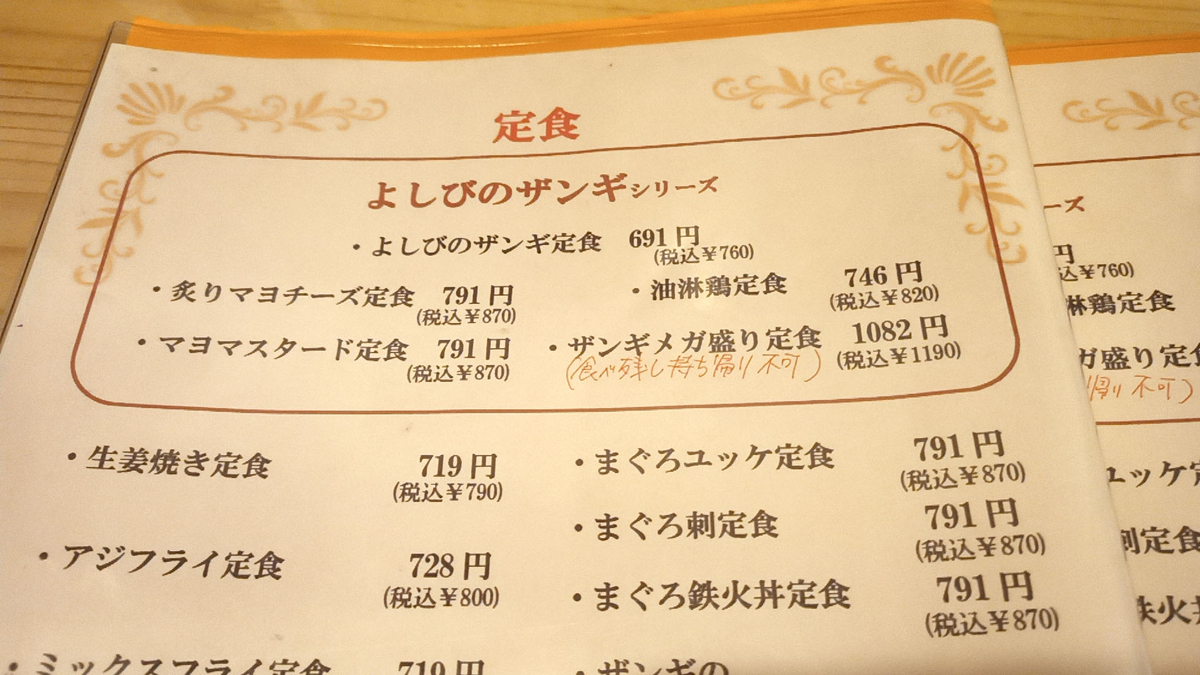 定食
よしびのザンギシリーズ
・よしびのザンギ定食 691円
(税込￥760)
・炙りマヨチーズ定食 791円
(税込￥870)
・油淋鶏定食 746円
(税込￥820)
・マヨマスタード定食 791円
(税込￥870)
・ザンギメガ盛り定食 1082円
(税込￥1190)
(食べ残し持ち帰り不可)
・生姜焼き定食 719円
(税込￥790)
・まぐろユッケ定食 791円
(税込￥870)
・まぐろ刺定食 791円
(税込￥870)
・アジフライ定食 728円
(税込￥800)
・まぐろ鉄火丼定食 791円
(税込￥870)
・ミックスフライ定食 719円
・ザンギの
ーズ
円
込￥760)
淋鶏定食
ガ盛り定食
帰り不可)
ユッケ定
刺定食
鉄火